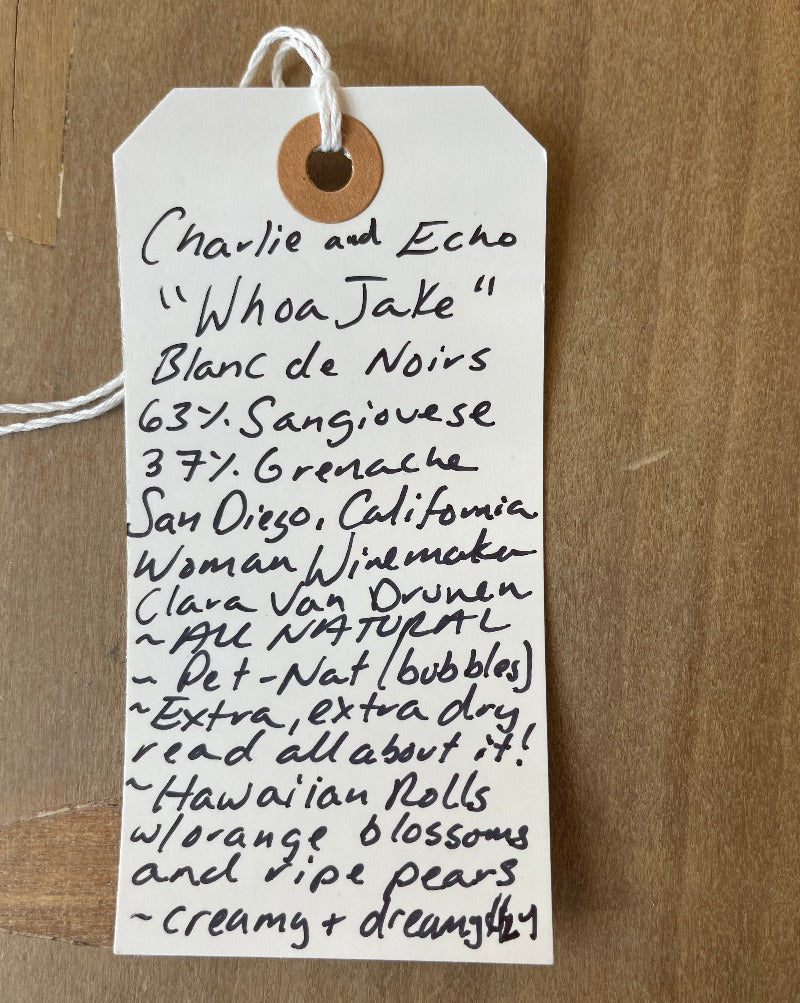 Charlie and Echo
"Whoa Jake"
Blanc de Noirs
63% Sangiovese
37% Grenache
San Diego, California
Woman Winemaker
Clara Van Drunen
~ ALL NATURAL
~ Pet-Nat (bubbles)
~Extra, extra dry
read all about it!
~Hawaiian Rolls
w/orange blossoms
and ripe pears
~creamy + dreamy